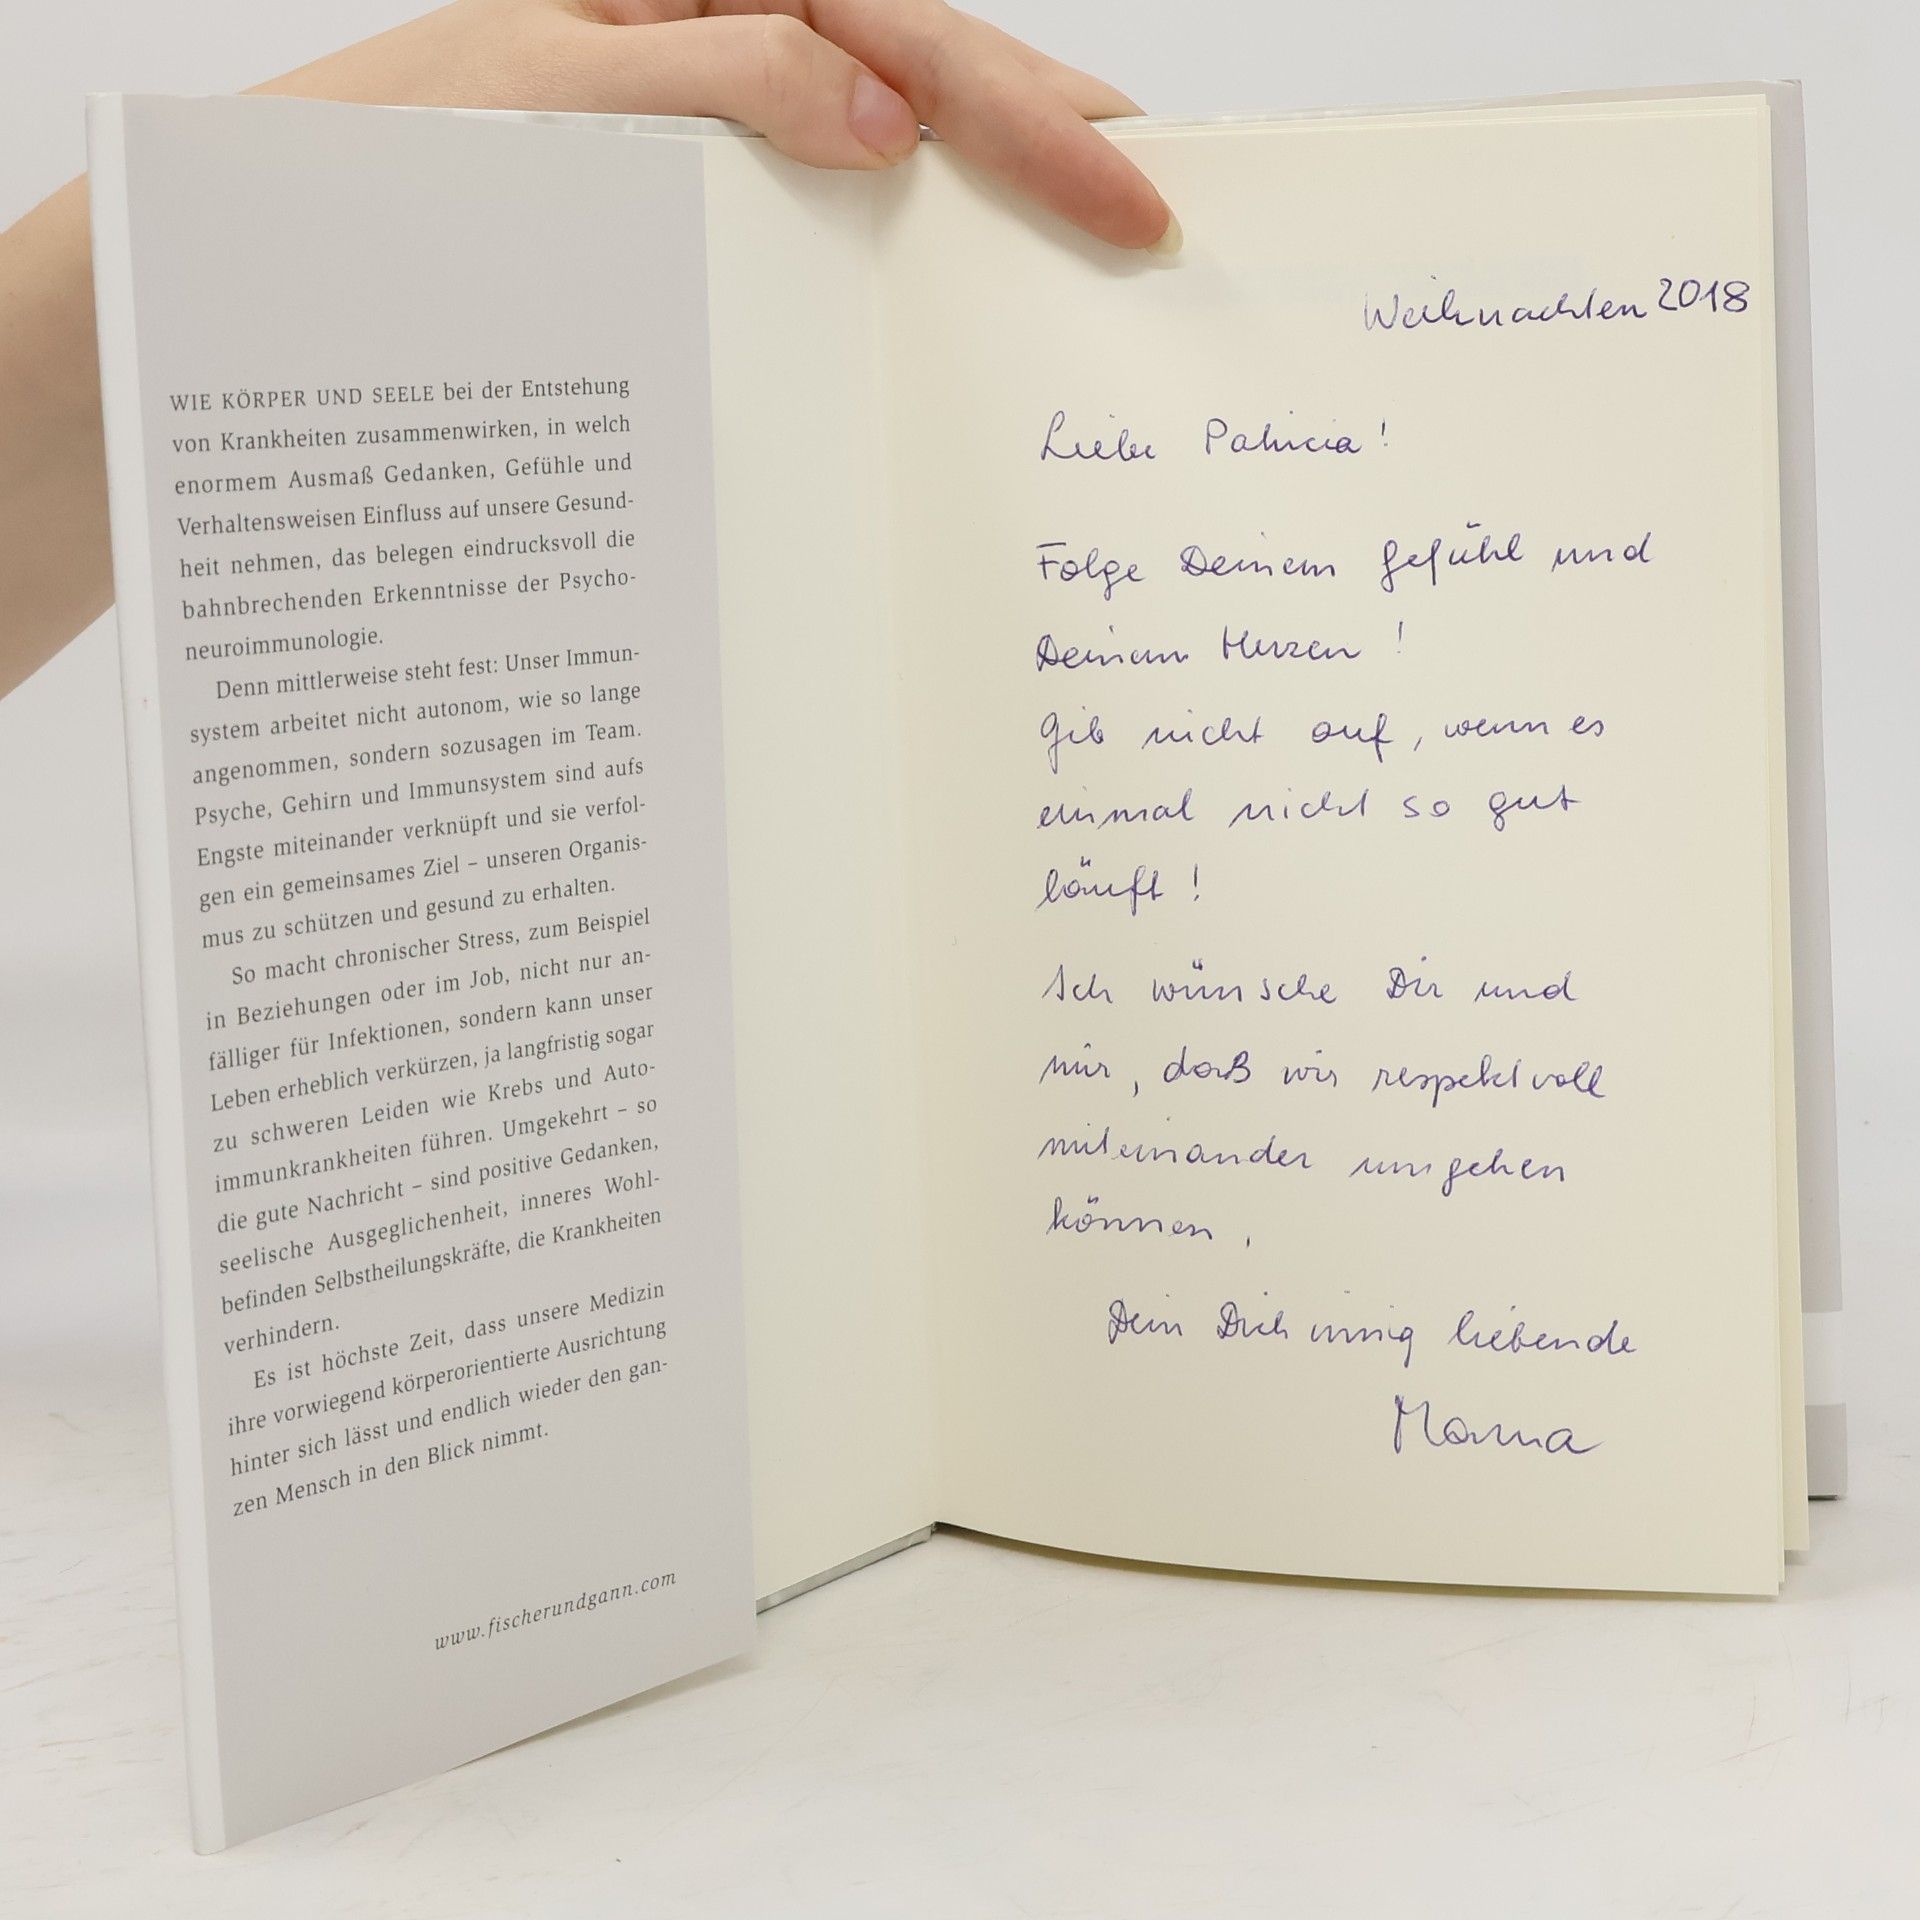 WIE KÖRPER UND SEELE bei der Entstehung
von Krankheiten zusammenwirken, in welch
enormem Ausmaß Gedanken, Gefühle und
Verhaltensweisen Einfluss auf unsere Gesund-
heit nehmen, das belegen eindrucksvoll die
bahnbrechenden Erkenntnisse der Psycho-
neuroimmunologie.
Denn mittlerweise steht fest: Unser Immun-
system arbeitet nicht autonom, wie so lange
angenommen, sondern sozusagen im Team.
Psyche, Gehirn und Immunsystem sind aufs
Engste miteinander verknüpft und sie verfol-
gen ein gemeinsames Ziel – unseren Organis-
mus zu schützen und gesund zu erhalten.
So macht chronischer Stress, zum Beispiel
in Beziehungen oder im Job, nicht nur an-
fälliger für Infektionen, sondern kann unser
Leben erheblich verkürzen, ja langfristig sogar
zu schweren Leiden wie Krebs und Auto-
immunkrankheiten führen. Umgekehrt – so
die gute Nachricht – sind positive Gedanken,
seelische Ausgeglichenheit, inneres Wohl-
befinden Selbstheilungskräfte, die Krankheiten
verhindern.
Es ist höchste Zeit, dass unsere Medizin
ihre vorwiegend körperorientierte Ausrichtung
hinter sich lässt und endlich wieder den gan-
zen Mensch in den Blick nimmt.
www.fischerundgann.com
Weihnachten 2018
Liebe Patricia!
Folge Deinem Gefühl und
Deinem Herzen!
Gib nicht auf, wenn es
einmal nicht so gut
läuft!
Ich wünsche Dir und
mir, daß wir respektvoll
miteinander umgehen
können,
Dein Dich innig liebende
Mama